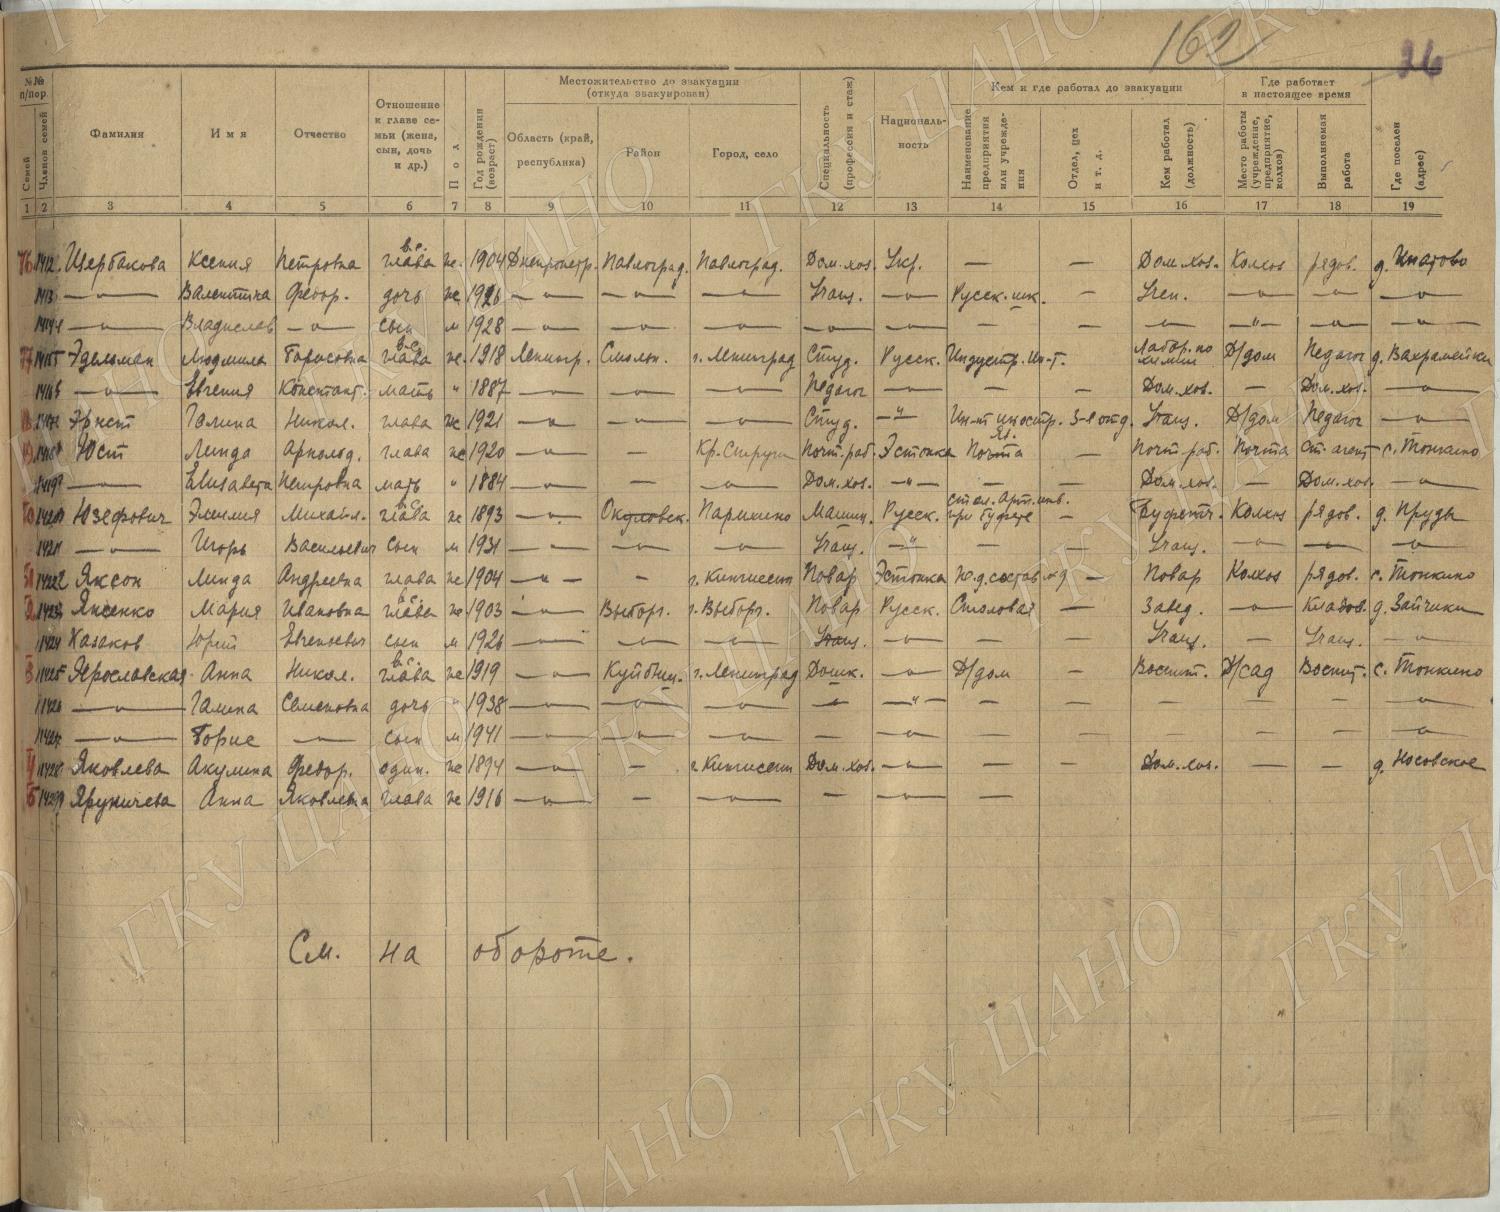 162
26
№№ п/пор.
Семей
Членов семей
Фамилия
Имя
Отчество
Отношение к главе семьи (жена, сын, дочь и др.)
Пол
Год рождения (возраст)
Местожительство до эвакуации (откуда эвакуирован)
Область (край, республика)
Район
Город, село
Специальность (профессия и стаж)
Национальность
Кем и где работал до эвакуации
Наименование предприятия или учреждения
Отдел, цех и т. д.
Кем работал (должность)
Где работает в настоящее время
Место работы (учреждение, предприятие, колхоз)
Выполняемая работа
Где поселен (адрес)
1 2 3 4 5 6 7 8 9 10 11 12 13 14 15 16 17 18 19
Щербакова Ксения Петровна в.с. глава ж. 1904 Днепропетр. Павлоград. Павлоград. Дом.хоз. Укр. — — Дом.хоз. Колхоз рядов. д. Игнатово
—"— Валентина Федор. дочь ж 1926 —"— —"— —"— Учащ. —"— Русск. шк. — Учен. —"— —"— —"—
—"— Владислав —"— сын м 1928 —"— —"— —"— —"— —"— — — —"— —"— —"— —"—
Эдельман Людмила Борисовна в.с. глава ж. 1918 Ленингр. Смольн. г. Ленинград Студ. Русск. Индустр. Ин-т. Лабор. по химии Д/дом Педагог д. Вахрамейки
—"— Евгения Констант. мать " 1887 —"— —"— —"— Педагог —"— — — Дом.хоз. — Дом.хоз. —"—
Эрнст Галина Никол. глава ж 1921 —"— —"— —"— Студ. —"— Ин-т иностр. яз. 3-й отд. Учащ. Д/дом Педагог —"—
Юст Линда Арнольд. глава ж 1920 —"— — Кр. Струги Почт. раб. Эстонка Почта — Почт. раб. Почта Ст. агент с. Тонкино
—"— Елизавета Петровна мать " 1884 —"— — —"— Дом.хоз. —"— — — Дом.хоз. — Дом.хоз. —"—
Юзефович Эмилия Михайл. в.с. глава ж 1893 —"— Окуловск. Парихино Машин. Русск. стол. Арт. инв. при буфете — Буфетч. Колхоз рядов. д. Пруды
—"— Игорь Васильевич сын м 1931 —"— —"— —"— Учащ. —"— — — Учащ. —"— —"— —"—
Яксон Линда Андреевна глава ж 1904 —"— — г. Кингисепп Повар Эстонка — Повар Колхоз рядов. с. Тонкино
Яксенко Мария Ивановна в.с. глава ж 1903 —"— Выборг. г. Выборг. Повар Русск. Столовая — Завед. —"— Кладов. д. Зайчики
Казаков Юрий Евгеньевич сын м 1926 —"— —"— —"— Учащ. —"— — — Учащ. — Учащ. —"—
Ярославская Анна Никол. в.с. глава ж 1919 —"— Куйбыш. г. Ленинград Дошк. —"— Д/дом — Воспит. Д/сад Воспит. с. Тонкино
—"— Галина Семеновна дочь " 1938 —"— —"— —"— —"— —"— — — — — — —"—
—"— Борис —"— сын м 1941 —"— —"— —"— — —"— — — — — — —"—
Яковлева Акулина Федор. один. ж 1894 —"— — г. Кингисепп Дом.хоз. —"— — — Дом.хоз. — — д. Носовское
Яруничева Анна Яковлевна глава ж 1916 —"— — —"— — —"— —
См. на обороте.
ГКУ ЦАНО